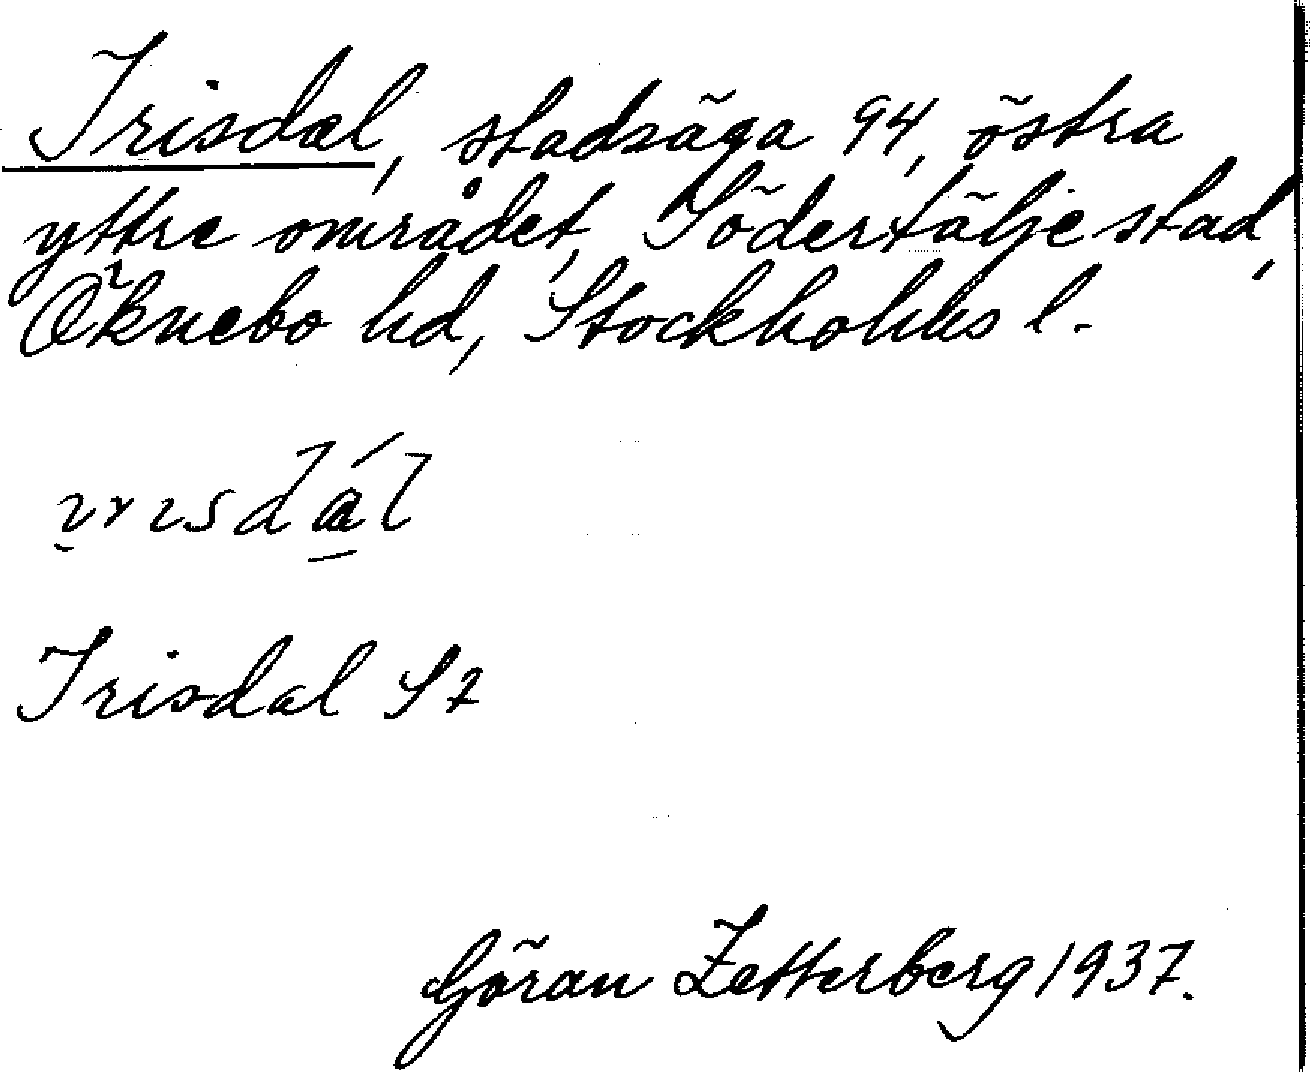 Irisdal, stadsäga 94, östra
yttre området, Södertälje stad,
Öknebo hd, Stockholms l.
ɪrɪsdál
Irisdal S z
Göran Zetterberg 1937.